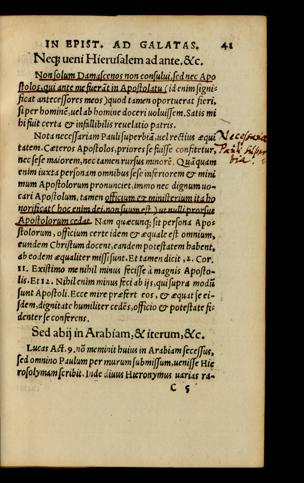 IN EPIST. AD GALATAS. 41
Neq; ueni Hierusalem ad ante, &c.
Non solum Damascenos non consului, sed nec Apo
stolos, qui ante me fuerāt in Apostolatu (id enim signi
ficat antecessores meos) quod tamen oportuerat fieri,
si per hominē, uel ab homine doceri uoluissem. Satis mi
hi fuit certa & infallibilis reuelatio patris.
Nota necessariam Pauli superbiā, uel rectius æqui
tatem. Cæteros Apostolos, priores se fuisse confitetur,
nec sese maiorem, nec tamen rursus minorē. Quāquam
enim iuxta personam omnibus sese inferiorem & mini
mum Apostolorum pronunciet, immo nec dignum uo-
cari Apostolum, tamen officium & ministerium ita ho
norificat (hoc enim dei, non suum est) ut nulli prorsus
Apostolorum cedat. Nam quæcunq; sit persona Apo
stolorum, officium certe idem & æquale est omnium,
eundem Christum docent, eandem potestatem habent,
ab eodem æqualiter missi sunt. Et tamen dicit, 2. Cor.
11. Existimo me nihil minus fecisse à magnis Aposto-
lis. Et 12. Nihil enim minus feci ab ijs, qui supra modū
sunt Apostoli. Ecce mire præfert eos, & æquat se ei-
sdem, dignitate humiliter cedēs, officio & potestate fi-
denter se conferens.
Sed abij in Arabiam, & iterum, &c.
Lucas Act. 9. nō meminit huius in Arabiam secessus,
sed omnino Paulum per murum submissum, uenisse Hie
rosolymam scribit. Inde diuus Hieronymus uarias ra-
C 5
Necessaria
Pauli super
bia.